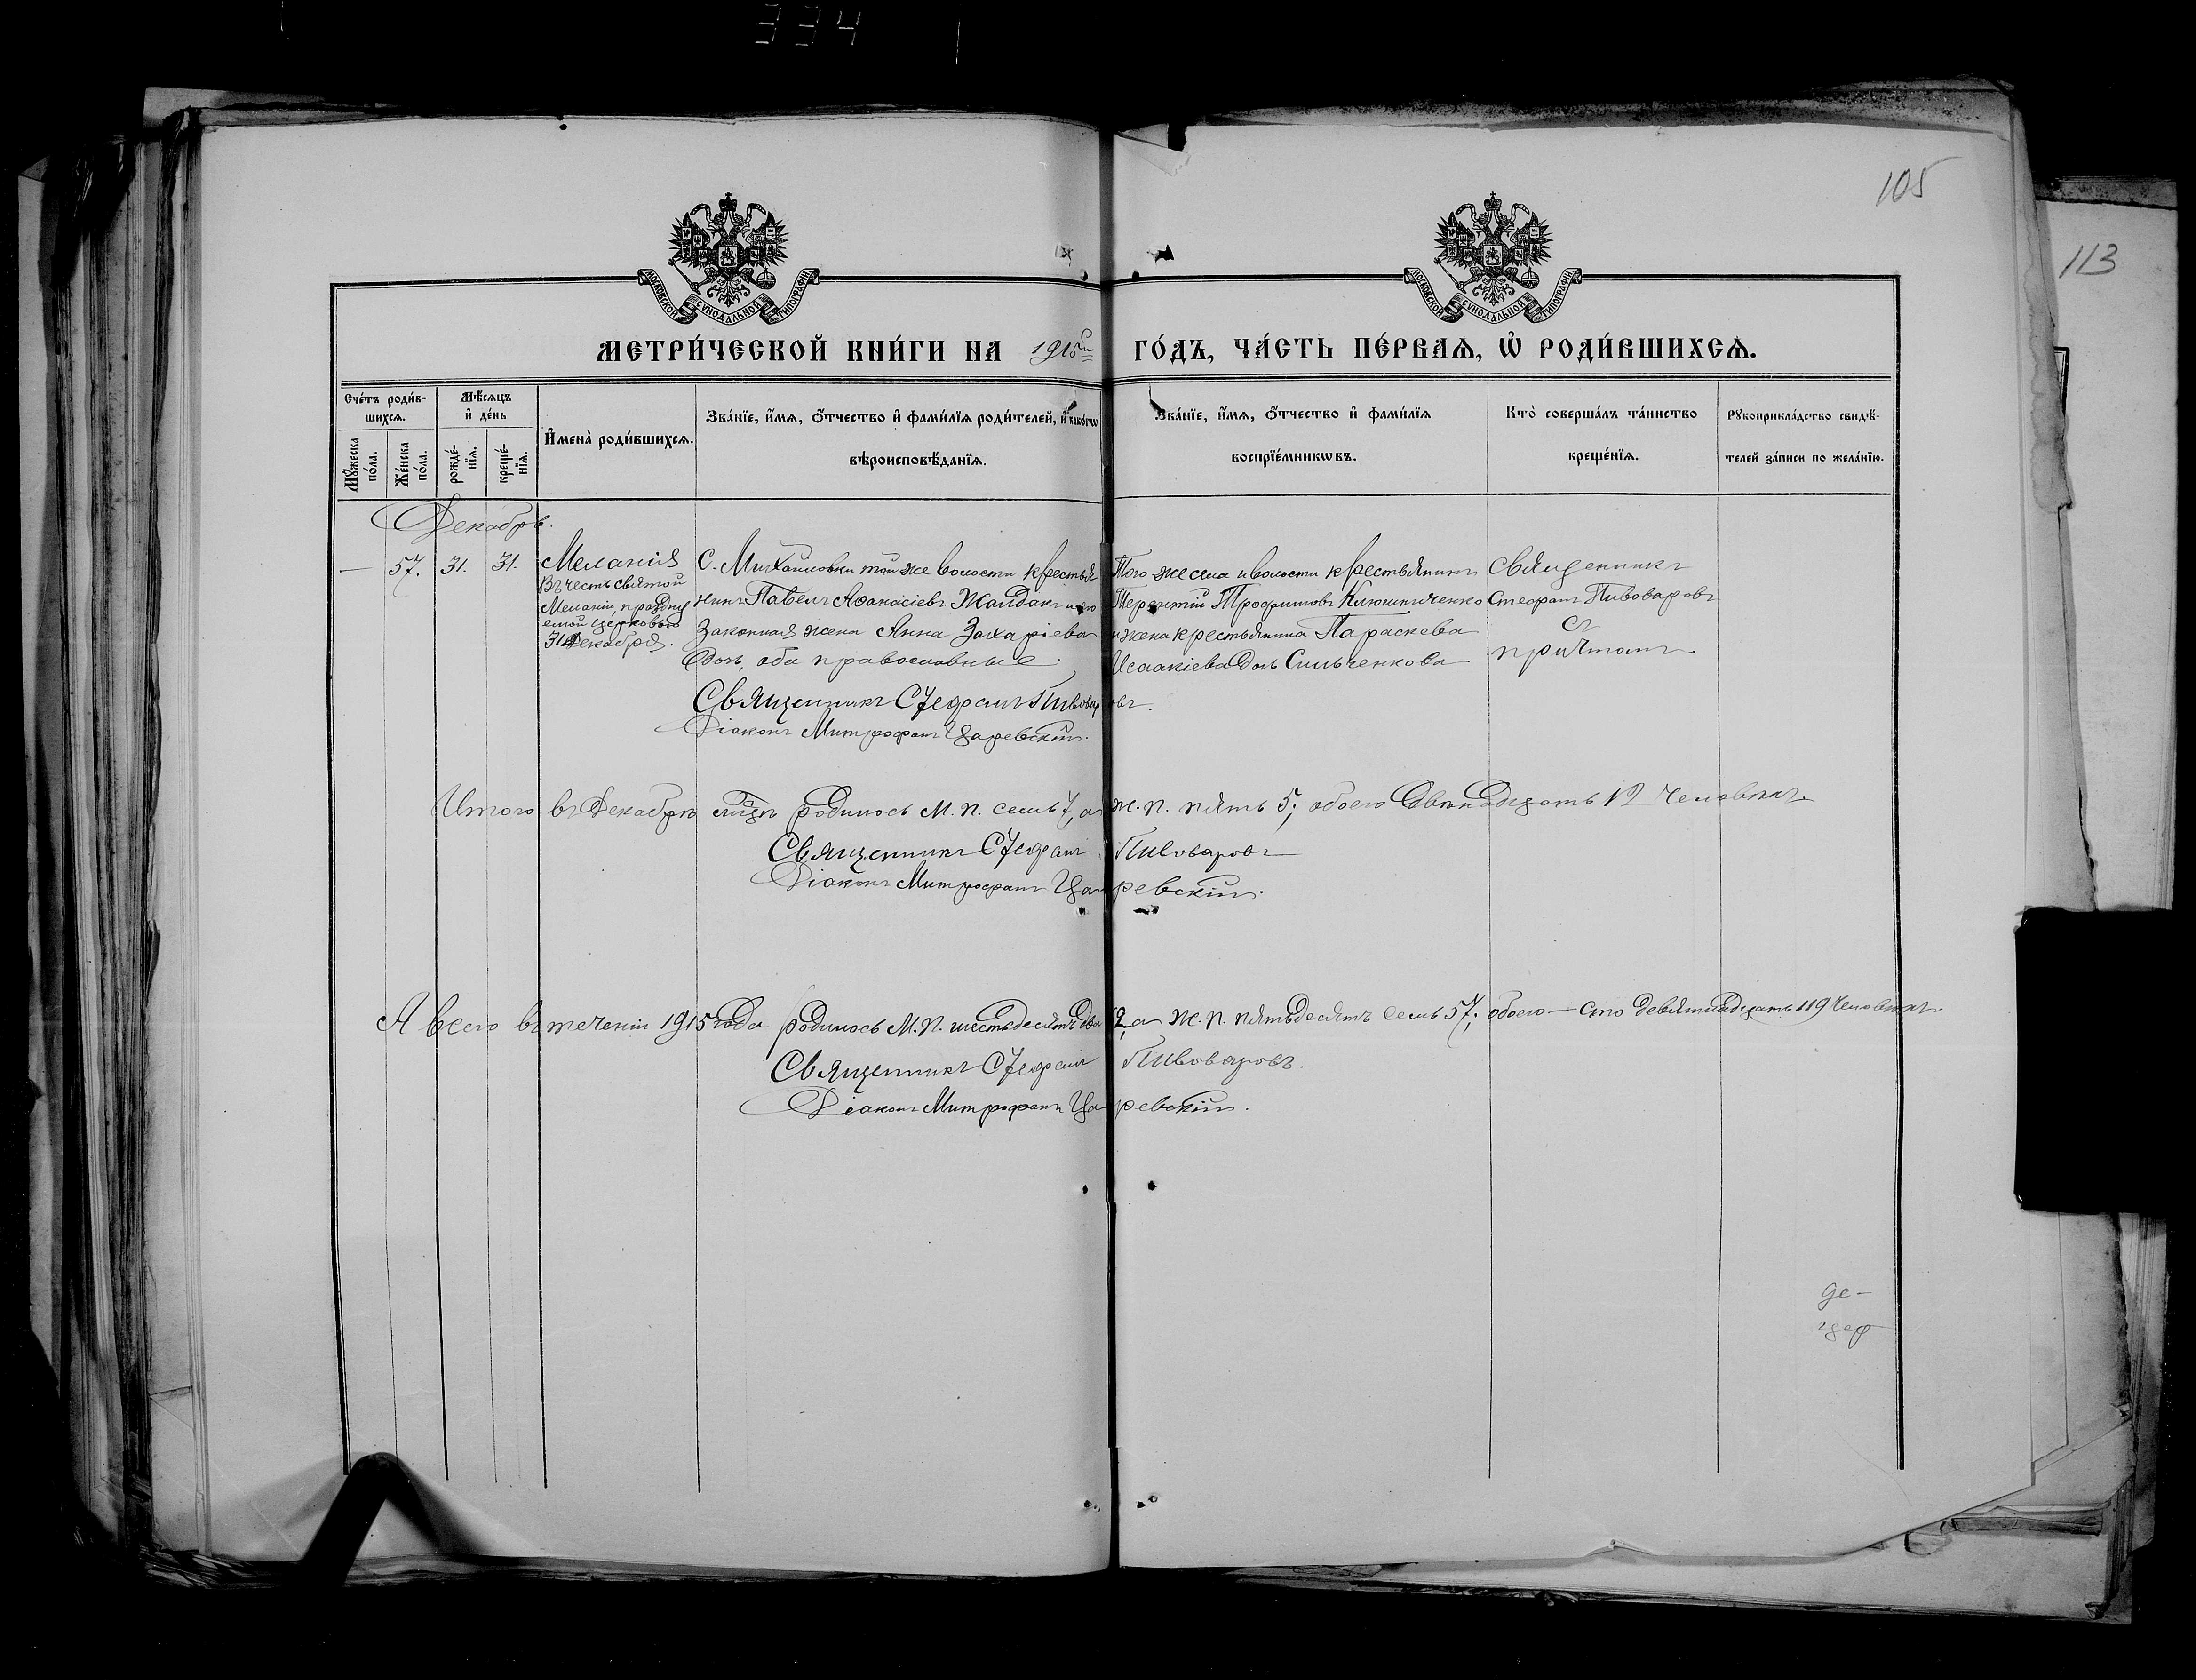 334
105
113
МОСКОВСКОЙ СѴНОДАЛЬНОЙ ТИПОГРАФІИ
МОСКОВСКОЙ СѴНОДАЛЬНОЙ ТИПОГРАФІИ
МЕТРИ́ЧЕСКОЙ КНИ́ГИ НА 1915й ГО́ДЪ, ЧА́СТЬ ПЕ́РВАѦ, Ѡ҆ РОДИ́ВШИХСѦ.
Сче́тъ роди́в-
шихсѧ.
Мꙋ́жеска по́ла.
Же́нска по́ла.
Мѣ́сѧцъ
и҆ де́нь
рожде́-
нїѧ.
креще́-
нїѧ.
И҆мена̀ роди́вшихсѧ.
Зва́нїе, и҆́мѧ, ѻ҆́тчество и҆ фами́лїѧ роди́телей, и҆ како́гѡ
вѣроисповѣ́данїѧ.
Зва́нїе, и҆́мѧ, ѻ҆́тчество и҆ фами́лїѧ
воспрїе́мникѡвъ.
Кто̀ соверша́лъ та́инство
креще́нїѧ.
Рꙋкоприкла́дство свидѣ́-
телей за́писи по жела́нїю.
Декабрь.
— 57. 31. 31.
Меланія
Въ честь святой
Меланіи, праздну
емой церковью
31 декабря.
С. Михайловки той же волости крестья
нинъ Павелъ Аѳанасіевъ Жайдакъ и его
законная жена Анна Захаріева
дочь, оба православные.
Того же села и волости крестьянинъ
Терентій Трофимовъ Ключниченко
и жена крестьянина Параскева
Исаакіева дочь Сильченкова
Священникъ
Стефанъ Пивоваровъ
съ
причтомъ.
Священникъ Стефанъ Пивоваровъ.
Діаконъ Митрофанъ Царевскій.
Итого въ Декабрѣ мѣцѣ родилось М. п. семь 7, а ж. п. пять 5; обоего двѣнадцать 12 человѣкъ
Священникъ Стефанъ Пивоваровъ
Діаконъ Митрофанъ Царевскій.
А всего въ теченіи 1915 года родилось М. п. шестьдесятъ два 62, а ж. п. пятьдесятъ семь 57; обоего — сто девятнадцать 119 человѣкъ.
Священникъ Стефанъ Пивоваровъ.
Діаконъ Митрофанъ Царевскій.